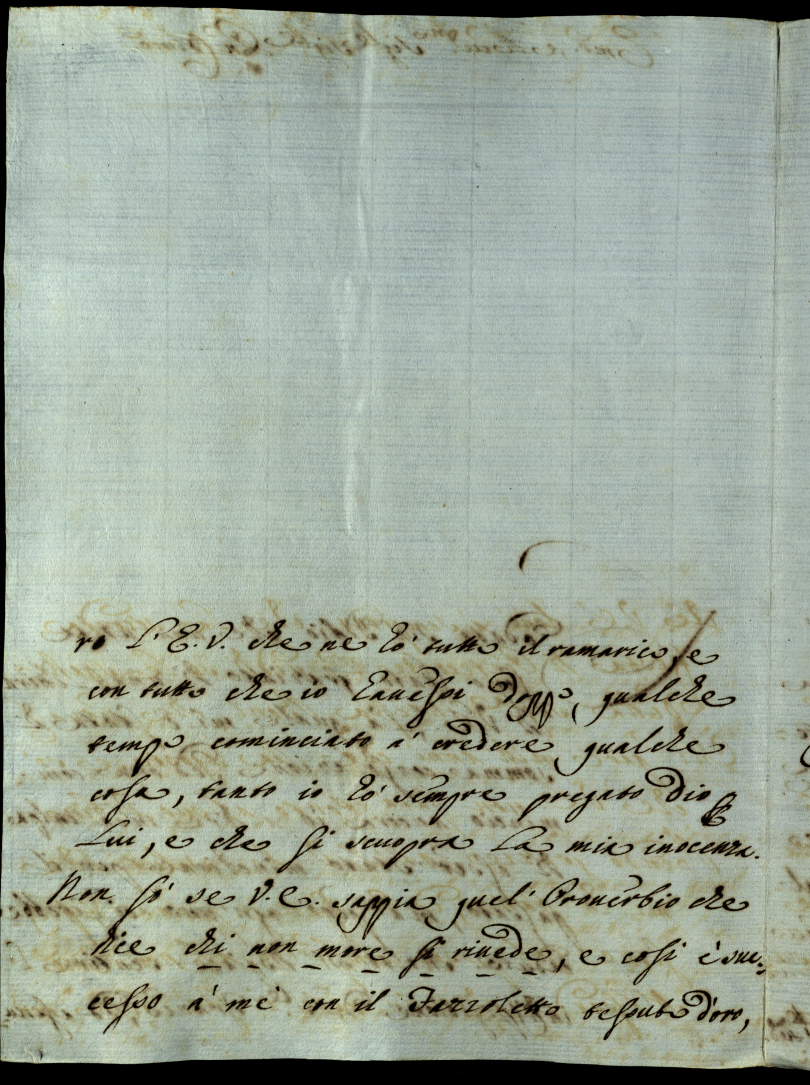 ro l'E. V. che ne hò tutto il ramarico, e
con tutto che io havessi doppo, qualche
tempo cominciato à credere qualche
cosa, tanto io hò sempre pregato Dio per
Lui, e che si scuopra la mia inocenza.
Non sò se V. E. sappia quel Proverbio che
dice chi non more si rivede, e così è suc=
cesso à mè con il Fazzoletto tessuto d'oro,